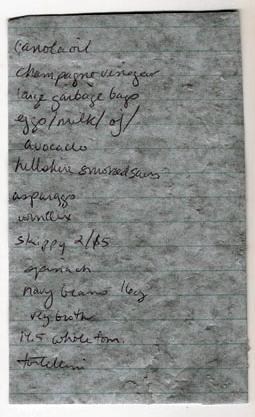 canola oil
champagne vinegar
large garbage bags
eggs/milk/oj/
avocado
hillshire smoked saus
asparaggs
windex
skippy 2/$5
spinach
navy beans 16oz
veg broth
14.5 whole tom.
tortellini